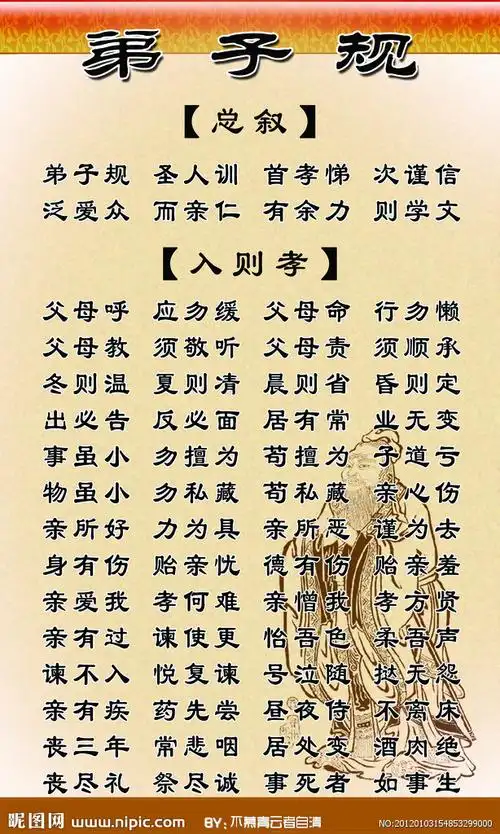 弟子规
【总叙】
弟子规 圣人训 首孝悌 次谨信
泛爱众 而亲仁 有余力 则学文
【入则孝】
父母呼 应勿缓 父母命 行勿懒
父母教 须敬听 父母责 须顺承
冬则温 夏则凊 晨则省 昏则定
出必告 反必面 居有常 业无变
事虽小 勿擅为 苟擅为 子道亏
物虽小 勿私藏 苟私藏 亲心伤
亲所好 力为具 亲所恶 谨为去
身有伤 贻亲忧 德有伤 贻亲羞
亲爱我 孝何难 亲憎我 孝方贤
亲有过 谏使更 怡吾色 柔吾声
谏不入 悦复谏 号泣随 挞无怨
亲有疾 药先尝 昼夜侍 不离床
丧三年 常悲咽 居处变 酒肉绝
丧尽礼 祭尽诚 事死者 如事生
昵图网 www.nipic.com BY: 不慕青云者自清 NO:20120103154853299000